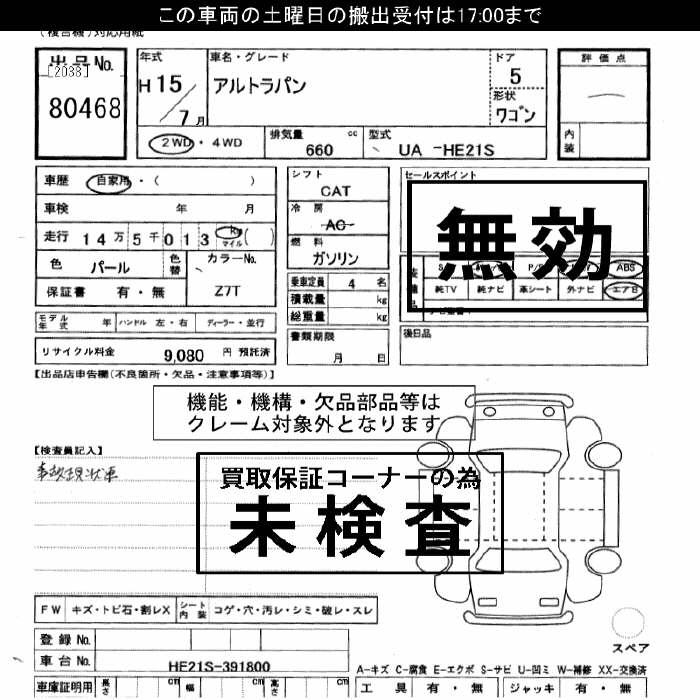 この車両の土曜日の搬出受付は17:00まで
(複合機)対応用紙
出品No.
[2033]
80468
年式
H 15 / 7 月
車名・グレード
アルトラパン
ドア
5
形状
ワゴン
評価点
内装
2WD・4WD
排気量 cc
660
型式
UA -HE21S
車歴 自家用・( )
車検 年 月
走行 14万5千013 km マイル ( )
色 パール
色替
カラーNo.
Z7T
保証書 有・無
シフト
CAT
冷房
AC
燃料
ガソリン
乗車定員 4 名
積載量 kg
総重量 kg
書類期限
月 日
セールスポイント
無効
ABS
純TV 純ナビ 革シート 外ナビ エアB
後日品
モデル年式 年 ハンドル 左・右 ディーラー・並行
リサイクル料金 9,080 円 預託済
【出品店申告欄(不良箇所・欠品・注意事項等)】
機能・機構・欠品部品等は
クレーム対象外となります
【検査員記入】
事故現状車
買取保証コーナーの為
未検査
FW キズ・トビ石・割レX シート内装 コゲ・穴・汚レ・シミ・破レ・スレ
登録No.
車台No. HE21S-391800
スペア
A-キズ C-腐食 E-エクボ S-サビ U-凹ミ W-補修 XX-交換済
車庫証明用 長さ cm 幅 cm 高さ cm
工具 有・無 ジャッキ 有・無